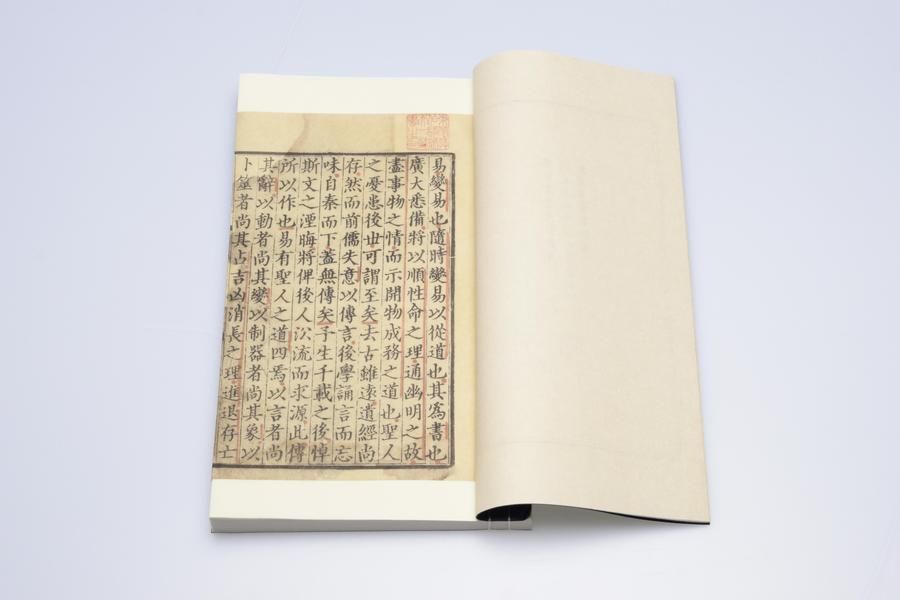 易變易也隨時變易以從道也其爲書也
廣大悉備將以順性命之理通幽明之故
盡事物之情而示開物成務之道也聖人
之憂患後世可謂至矣去古雖遠遺經尚
存然而前儒失意以傳言後學誦言而忘
味自秦而下蓋無傳矣予生千載之後悼
斯文之湮晦將俾後人沿流而求源此傳
所以作也易有聖人之道四焉以言者尚
其辭以動者尚其變以制器者尚其象以
卜筮者尚其占吉凶消長之理進退存亡